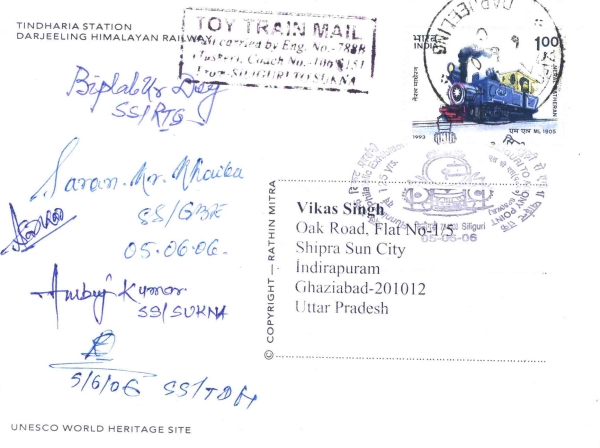 TINDHARIA STATION
DARJEELING HIMALAYAN RAILWAY
TOY TRAIN MAIL
carried by Eng. No.-788B
Coach No.
From-SILIGURI TO SUKNA
DARJEELING
भारत
INDIA
1.00
नेरल माथेरान
NERAL MATHERAN
1993
एम एल ML 1905
Biplab Kr Dey
SS/RTG
Saran Kr.
SS/
05.06.06.
Ambuj Kumar
SS/SUKNA
5/6/06 SS/TDH
Siliguri
05-06-06
Vikas Singh
Oak Road, Flat No-1/5
Shipra Sun City
Indirapuram
Ghaziabad-201012
Uttar Pradesh
© COPYRIGHT – RATHIN MITRA
UNESCO WORLD HERITAGE SITE